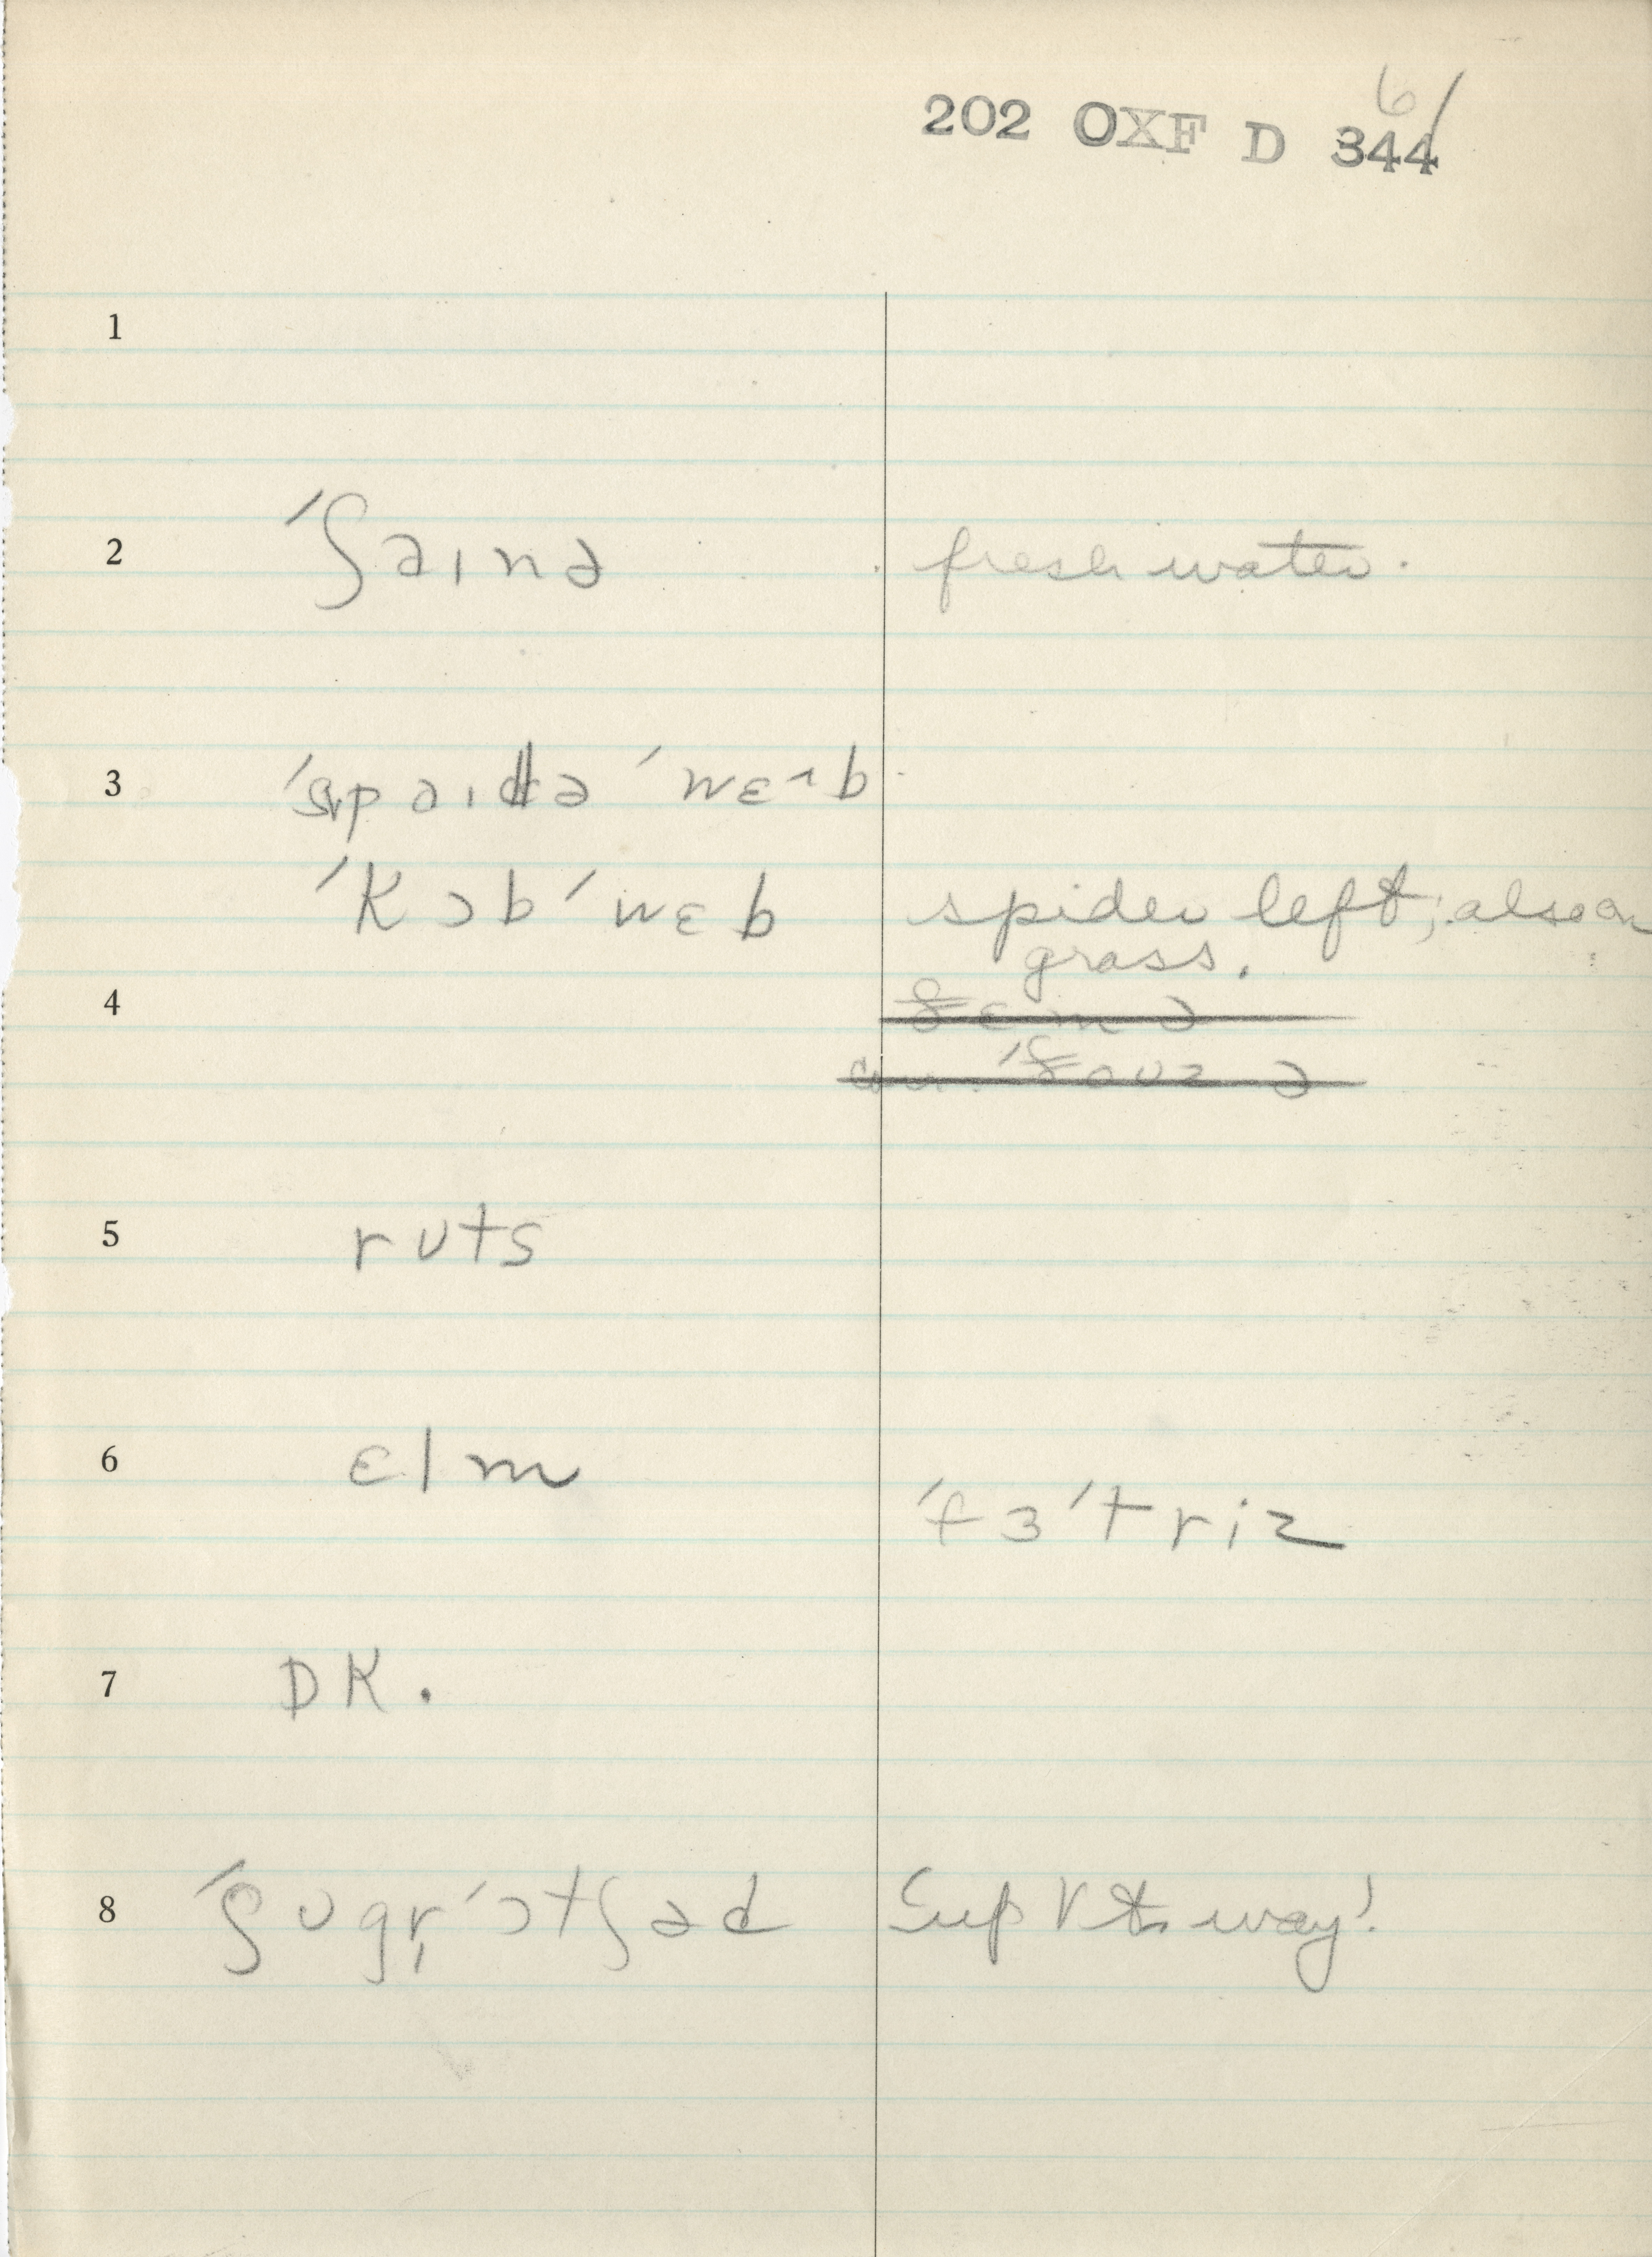 6/
202 OXF D 344
1
2 ˈʃaɪnə fresh water.
3 ˈspaɪdə ˈwɛ˄b
ˈkɔbˈwɛb spider left; also on
grass.
4
5 rʊts
6 ɛlm
ˈfɜˈtriz
7 DK.
8 ˈʃʊgr̩ˈɔtʃəd Sup V the way!